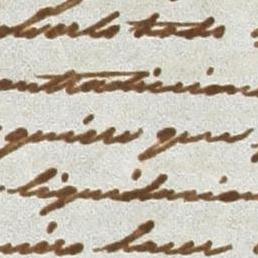 olverlo todo
contradicion
quiero que
liquidacion
niero hacer